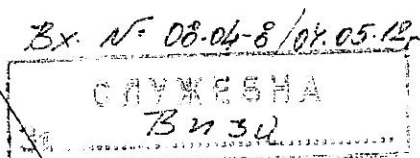 Вх. № 08-04-8/04.05.12г
СЛУЖЕБНА
Визи